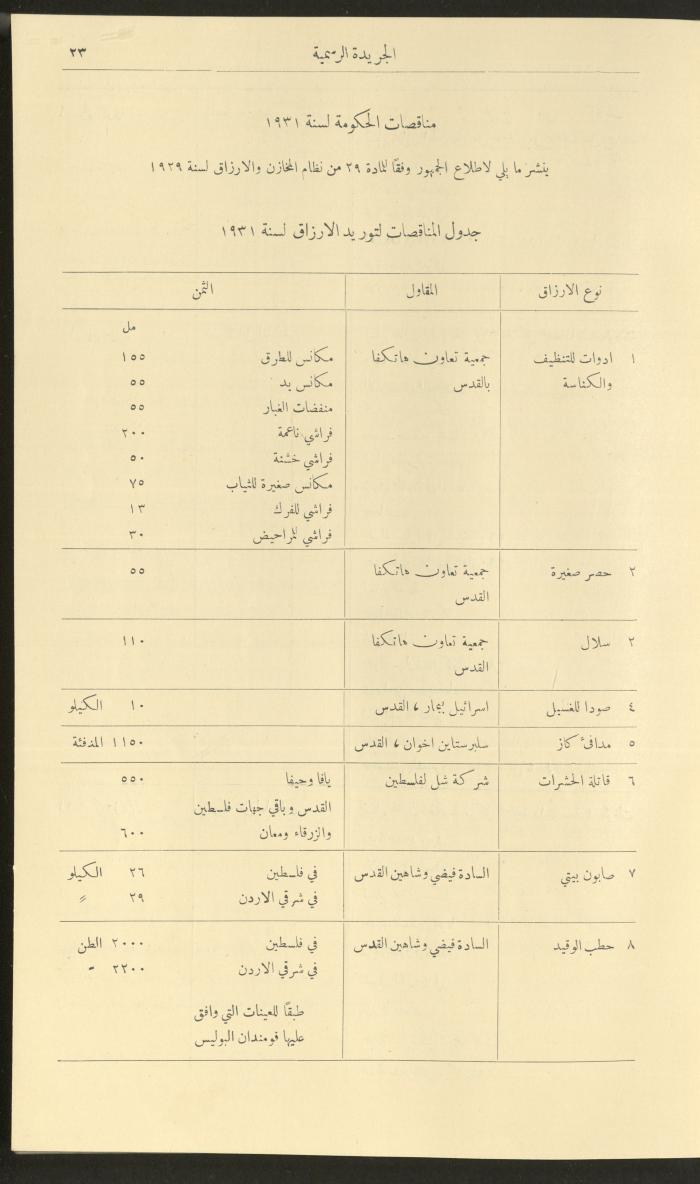 الجريدة الرسمية ٢٣
مناقصات الحكومة لسنة ١٩٣١
ينشر ما يلي لاطلاع الجمهور وفقًا للمادة ٢٩ من نظام المخازن والارزاق لسنة ١٩٢٩
جدول المناقصات لتوريد الارزاق لسنة ١٩٣١
نوع الارزاق المقاول الثمن
مل
١ ادوات للتنظيف جمعية تعاون هاتكفا مكانس للطرق ١٥٥
والكناسة بالقدس مكانس يد ٥٥
منفضات الغبار ٥٥
فراشي ناعمة ٢٠٠
فراشي خشنة ٥٠
مكانس صغيرة للثياب ٧٥
فراشي للفرك ١٣
فراشي للمراحيض ٣٠
٢ حصر صغيرة جمعية تعاون هاتكفا ٥٥
القدس
٢ سلال جمعية تعاون هاتكفا ١١٠
القدس
٤ صودا للغسيل اسرائيل بيمار، القدس ١٠ الكيلو
٥ مدافئ كاز سلبرستاين اخوان، القدس ١١٥٠ المدفئة
٦ قاتلة الحشرات شركة شل لفلسطين يافا وحيفا ٥٥٠
القدس وباقي جهات فلسطين
والزرقاء ومعان ٦٠٠
٧ صابون بيتي السادة فيضي وشاهين القدس في فلسطين ٢٦ الكيلو
في شرقي الاردن ٢٩〃
٨ حطب الوقيد السادة فيضي وشاهين القدس في فلسطين ٢٠٠٠ الطن
في شرقي الاردن ٢٢٠٠ 〃
طبقًا للعينات التي وافق
عليها قومندان البوليس